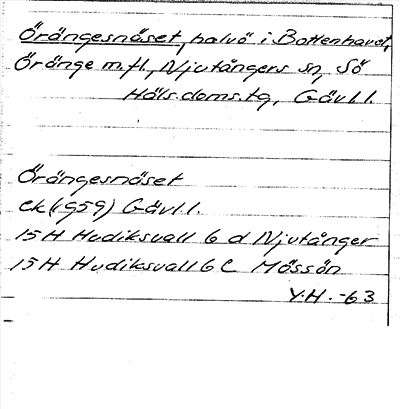 Örängesnäset, halvö i Bottenhavet,
Öränge m.fl., Njutångers sn, Sö
Häls.doms.tg, Gävl.l.
Örängesnäset
ek (1959) Gävl.l.
15 H Hudiksvall 6 d Njutånger
15 H Hudiksvall 6 C Mössön
Y.H. -63